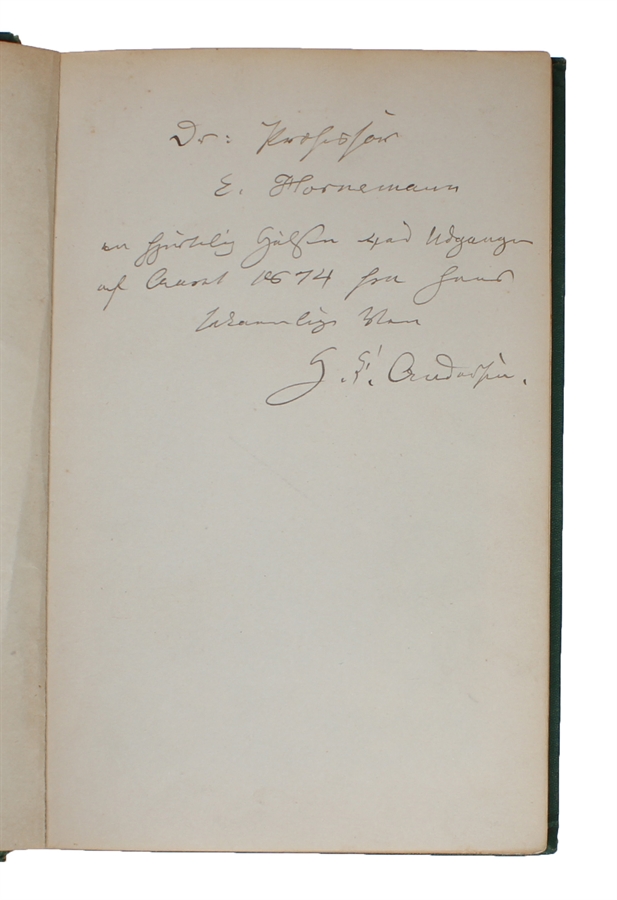 Dr: Professor
E. Hornemann
en hjertelig Hilsen ved Udgangen
af Aaret 1874 fra hans
taknemlige Ven
H. C. Andersen.